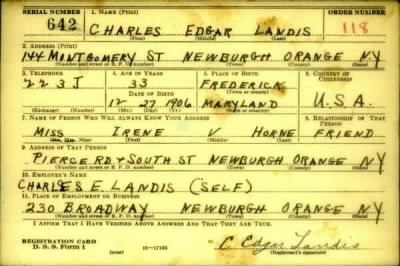 SERIAL NUMBER 1. NAME (Print) ORDER NUMBER
642 CHARLES EDGAR LANDIS 118
(First) (Middle) (Last)
2. ADDRESS (Print)
144 MONTGOMERY ST NEWBURGH ORANGE NY
(Number and street or R. F. D. number) (Town) (County) (State)
3. TELEPHONE 4. AGE IN YEARS 5. PLACE OF BIRTH 6. COUNTRY OF CITIZENSHIP
223J 33 FREDERICK
DATE OF BIRTH (Town or county)
12 27 1906 MARYLAND U.S.A.
(Exchange) (Number) (Mo.) (Day) (Yr.) (State or country)
7. NAME OF PERSON WHO WILL ALWAYS KNOW YOUR ADDRESS 8. RELATIONSHIP OF THAT PERSON
MISS IRENE V HORNE FRIEND
(Mr., Mrs., Miss) (First) (Middle) (Last)
9. ADDRESS OF THAT PERSON
PIERCE RD. & SOUTH ST NEWBURGH ORANGE NY
(Number and street or R. F. D. number) (Town) (County) (State)
10. EMPLOYER'S NAME
CHARLES E. LANDIS (SELF)
11. PLACE OF EMPLOYMENT OR BUSINESS
230 BROADWAY NEWBURGH ORANGE NY
(Number and street or R. F. D. number) (Town) (County) (State)
I AFFIRM THAT I HAVE VERIFIED ABOVE ANSWERS AND THAT THEY ARE TRUE.
REGISTRATION CARD
D. S. S. Form 1 (over) 16—17105 C. Edgar Landis
(Registrant's signature)